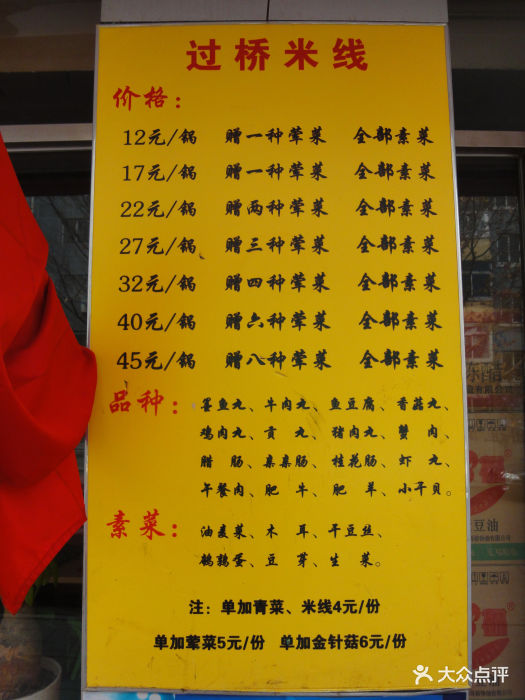 过桥米线
价格：
12元/锅 赠一种荤菜 全部素菜
17元/锅 赠一种荤菜 全部素菜
22元/锅 赠两种荤菜 全部素菜
27元/锅 赠三种荤菜 全部素菜
32元/锅 赠四种荤菜 全部素菜
40元/锅 赠六种荤菜 全部素菜
45元/锅 赠八种荤菜 全部素菜
品种：
墨鱼丸、牛肉丸、鱼豆腐、香菇丸、
鸡肉丸、贡 丸、猪肉丸、蟹 肉
腊 肠、亲亲肠、桂花肠、虾 丸、
午餐肉、肥 牛、肥 羊、小干贝。
素菜：
油麦菜、木 耳、干豆丝、
鹌鹑蛋、豆 芽、生 菜。
注：单加青菜、米线4元/份
单加荤菜5元/份 单加金针菇6元/份
豆油
大众点评